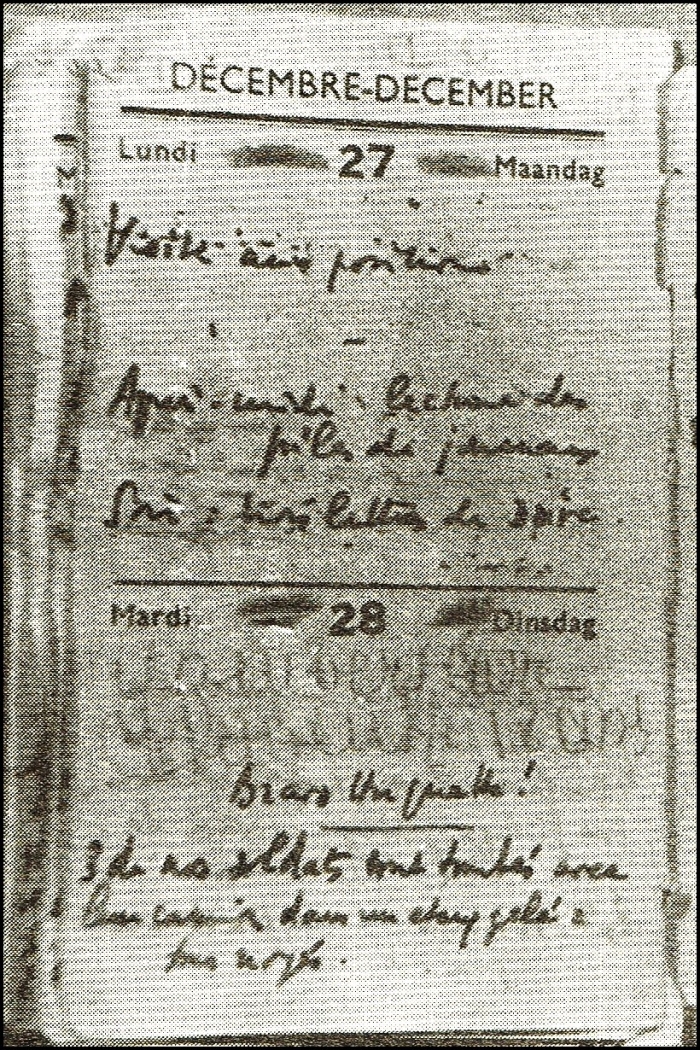 DÉCEMBRE-DECEMBER
Lundi 27 Maandag
Visite aux positions
Après-midi : lecture des
piles de journaux
Soir : lettres de
Mardi 28 Dinsdag
Bravo !
3 de nos soldats sont tombés avec
leur camion dans un étang gelé :
tous noyés.